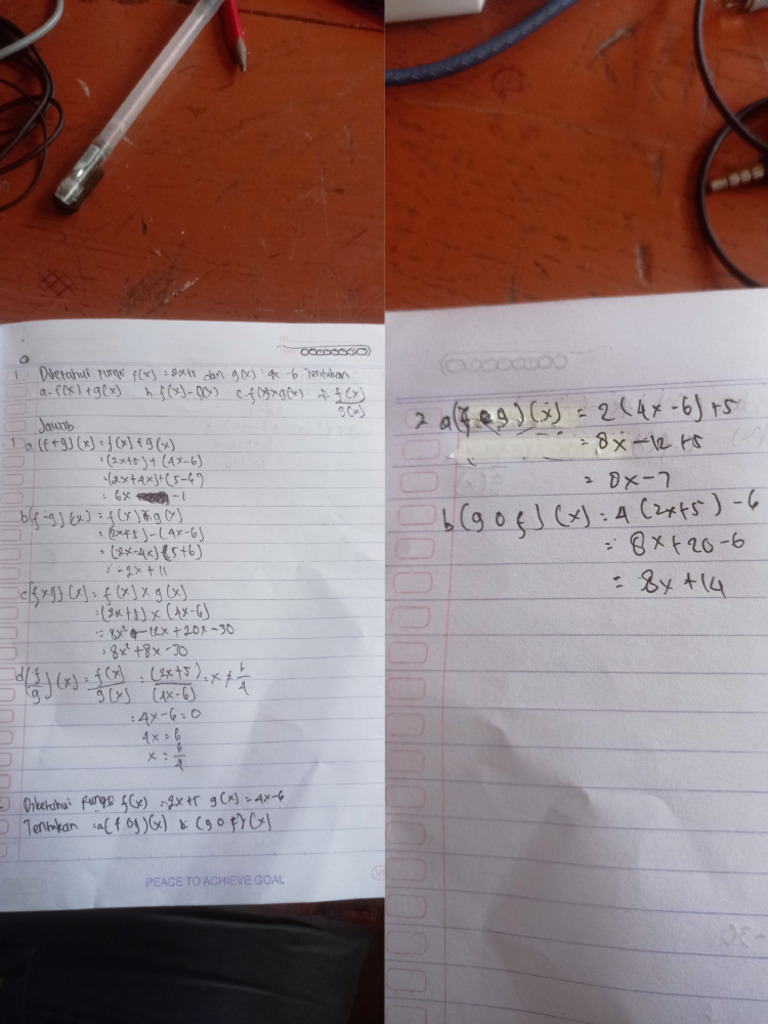 1 Diketahui fungsi f(x) = 2x+5 dan g(x) = 4x -6 Tentukan
a. f(x) + g(x) b. f(x) - g(x) c. f(x) x g(x) d. f(x)/g(x)
Jawab
1 a (f+g)(x) = f(x) + g(x)
= (2x+5) + (4x-6)
= (2x+4x)+(5-6)
= 6x -1
b (f-g)(x) = f(x) - g(x)
= (2x+5) - (4x-6)
= (2x-4x) (5+6)
= -2x + 11
c (fxg)(x) = f(x) x g(x)
= (2x+5) x (4x-6)
= 8x² - 12x + 20x - 30
= 8x² + 8x - 30
d (f/g)(x) = f(x)/g(x) = (2x+5)/(4x-6) = x ≠ 6/4
= 4x - 6 = 0
4x = 6
x = 6/4
Diketahui fungsi f(x) = 2x+5 g(x) = 4x-6
Tentukan : a (f o g)(x) b (g o f)(x)
PEACE TO ACHIEVE GOAL
2 a (f o g)(x) = 2(4x-6)+5
= 8x - 12 + 5
= 8x - 7
b (g o f)(x) = 4(2x+5) - 6
= 8x + 20 - 6
= 8x + 14